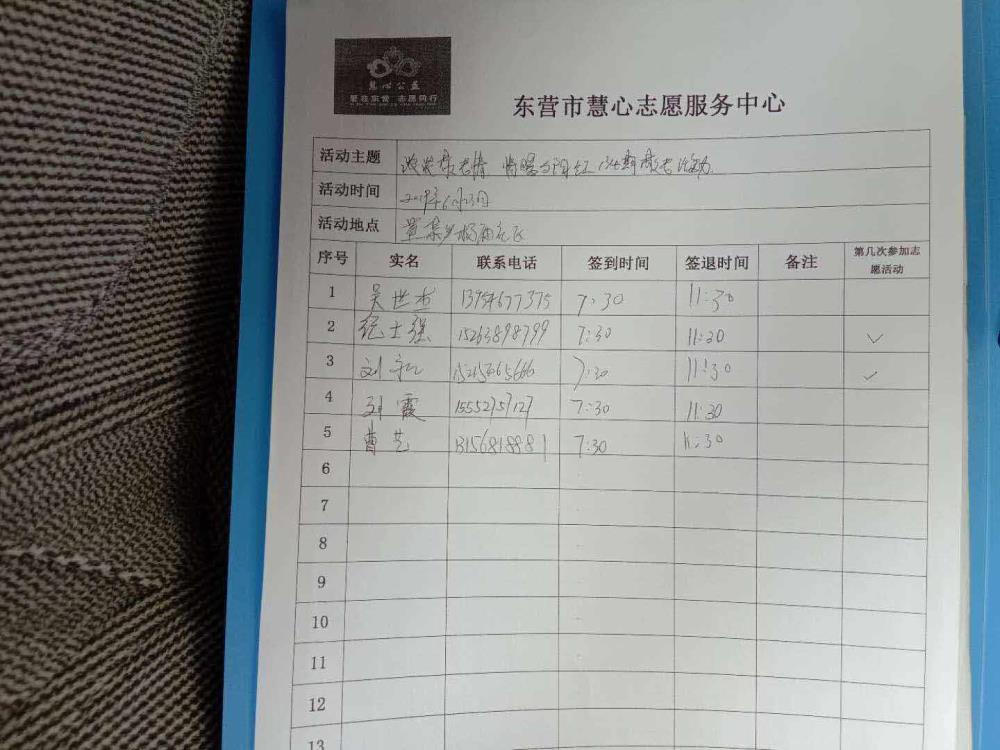 慧心公益
爱在东营 志愿同行
东营市慧心志愿服务中心
活动主题 浓浓敬老情 情暖夕阳红 敬老活动
活动时间 2019年6月23日
活动地点 社区
序号 实名 联系电话 签到时间 签退时间 备注 第几次参加志愿活动
1 吴世杰 13954677375 7:30 11:30
2 纪士强 15263898799 7:30 11:30 ✓
3 刘 7:30 11:30 ✓
4 刘霞 15552757127 7:30 11:30
5 曹艺 13156818881 7:30 11:30
6
7
8
9
10
11
12
13